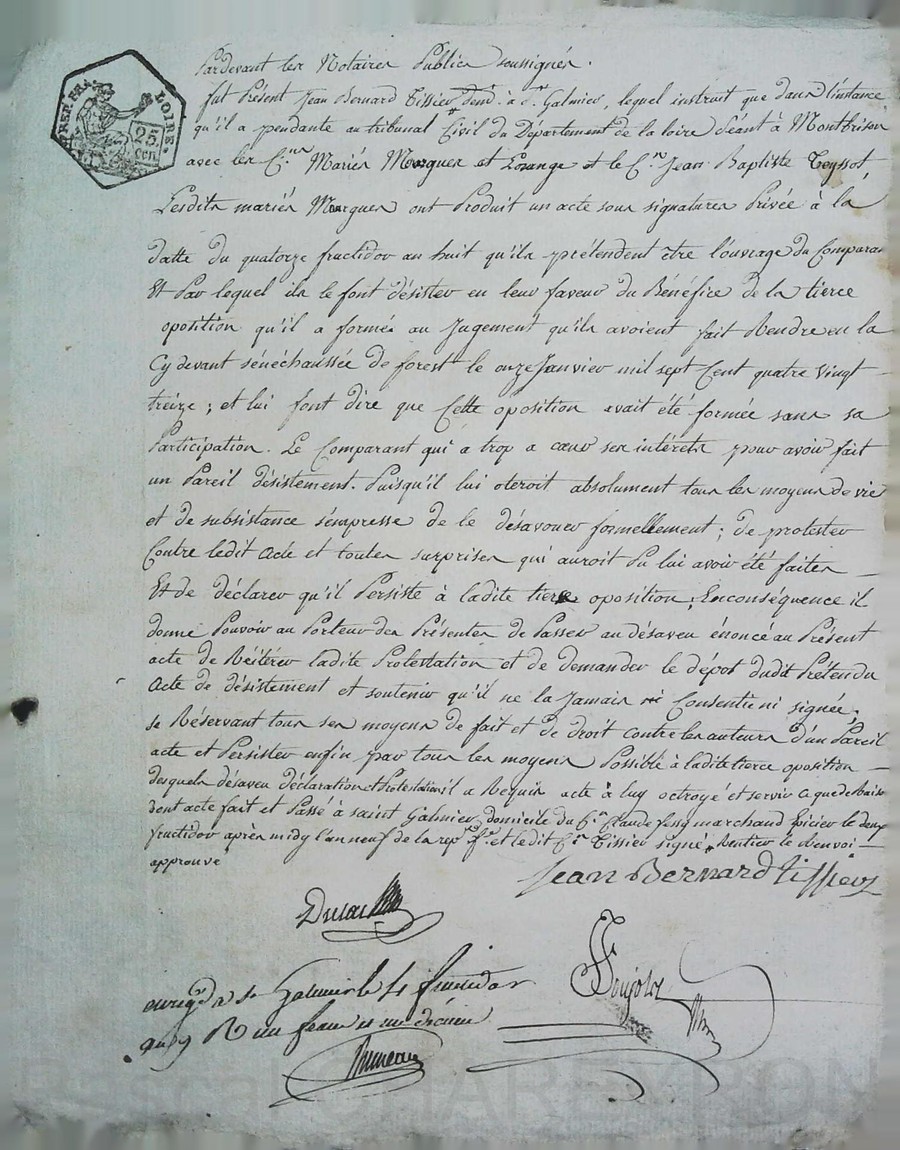 REP. FRA. LOIRE.
25 cen.
Pardevant les Notaires Publics soussignés.
fut Présent Jean Bernard Tissieur demt. à St. Galmier, lequel instruit que dans l'instance
qu'il a pendante au tribunal Civil du Département de la loire Séant à Montbrison
avec les Cens. Mariés Mourguer et Lorange et le Cn. Jean Baptiste Teyssot,
Lesdits mariés Mourguer ont Produit un acte sous signatures Privée à la
datte du quatorze fructidor an huit qu'ils prétendent être l'ouvrage du Comparant
Et Par lequel ils le font désister en leur faveur du Bénéfice de la tierce
oposition qu'il a formée au Jugement qu'ils avoient fait Rendre en la
Cy devant sénéchaussée de forest le onze Janvier mil sept Cent quatre vingt
treize; et lui font dire que Cette oposition avait été formée sans sa
Participation. Le Comparant qui a trop a cœur ses intérets pour avoir fait
un Pareil désistement. Puisqu'il lui oteroit absolument tous les moyens de vie
et de subsistance s'empresse de le désavouer formellement; de protester
Contre ledit acte et toutes surprises qui auroit Pu lui avoir été faites
Et de déclarer qu'il Persiste à ladite tierce oposition; Enconséquence il
donne Pouvoir au Porteur des Présentes de Passer au désaveu énoncé au Présent
acte de Réitérer ladite Protestation et de demander le dépot dudit Prétendu
Acte de désistement et soutenir qu'il ne la Jamais Consenti ni signée,
se Réservant tous ses moyens de fait et de droit contre les auteurs d'un Pareil
acte et Persister enfin par tous les moyens Possible à ladite tierce oposition
desquels désaveu déclaration et Protestation il a Requis acte à luy octroyé et servir ce que de Raison
dont acte fait et Passé à saint Galmier domicile du Cn. Claude Jessy marchand épicier le deux
fructidor après midy l'an neuf de la repe. fe. et ledit Cn. Tissieur signé, Rentier le Renvoi
approuvé
Jean Bernard Tissieur
enregé. à St. Galmier le 4 fructidor
an 9 R un franc et un décime